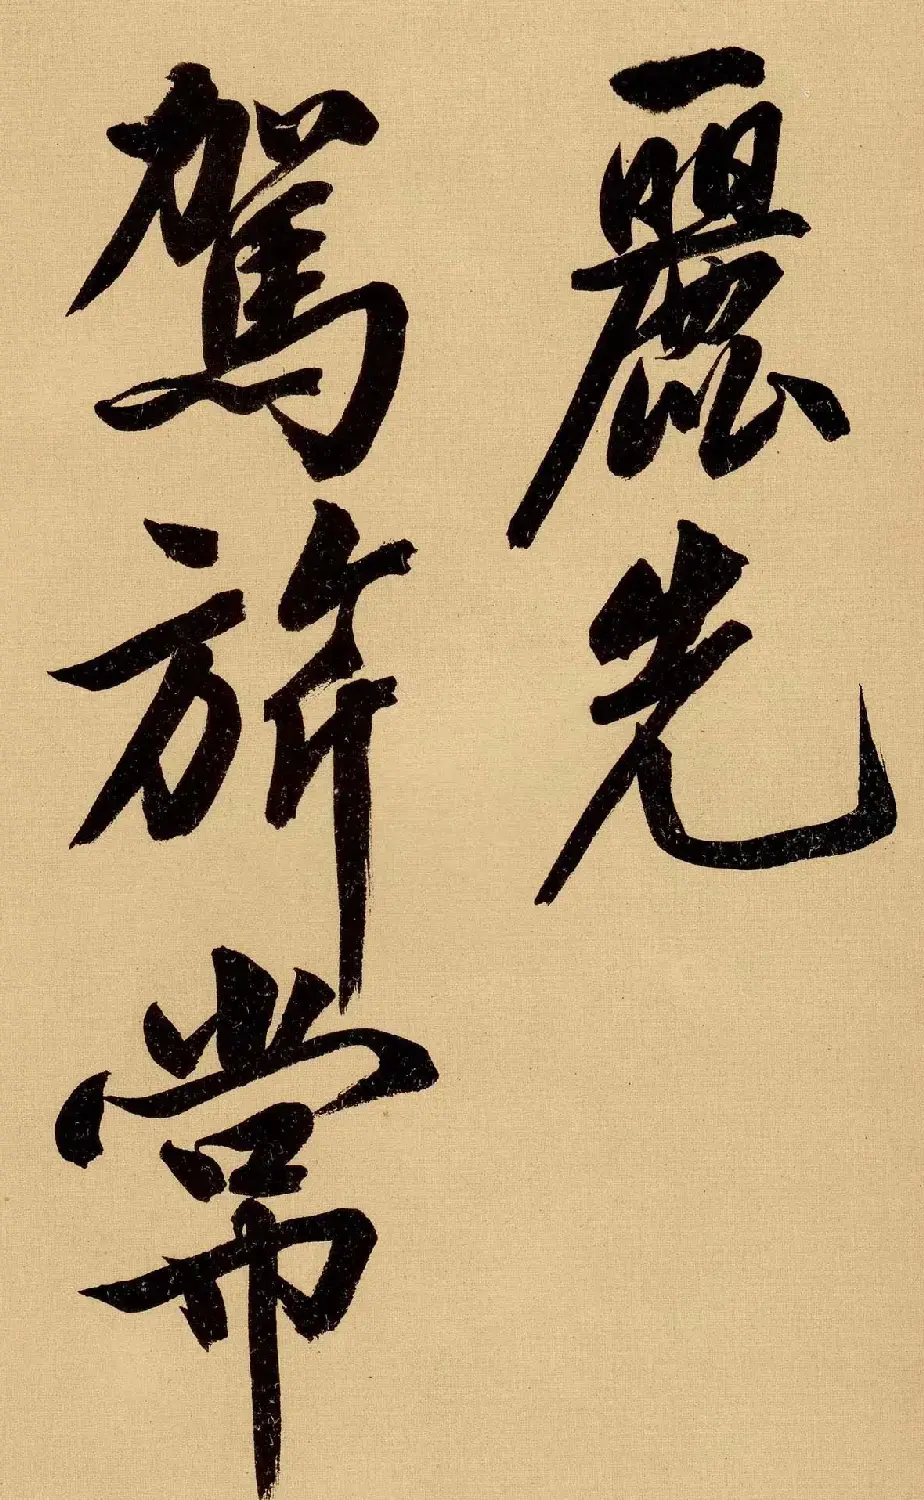 麗光
駕旂常